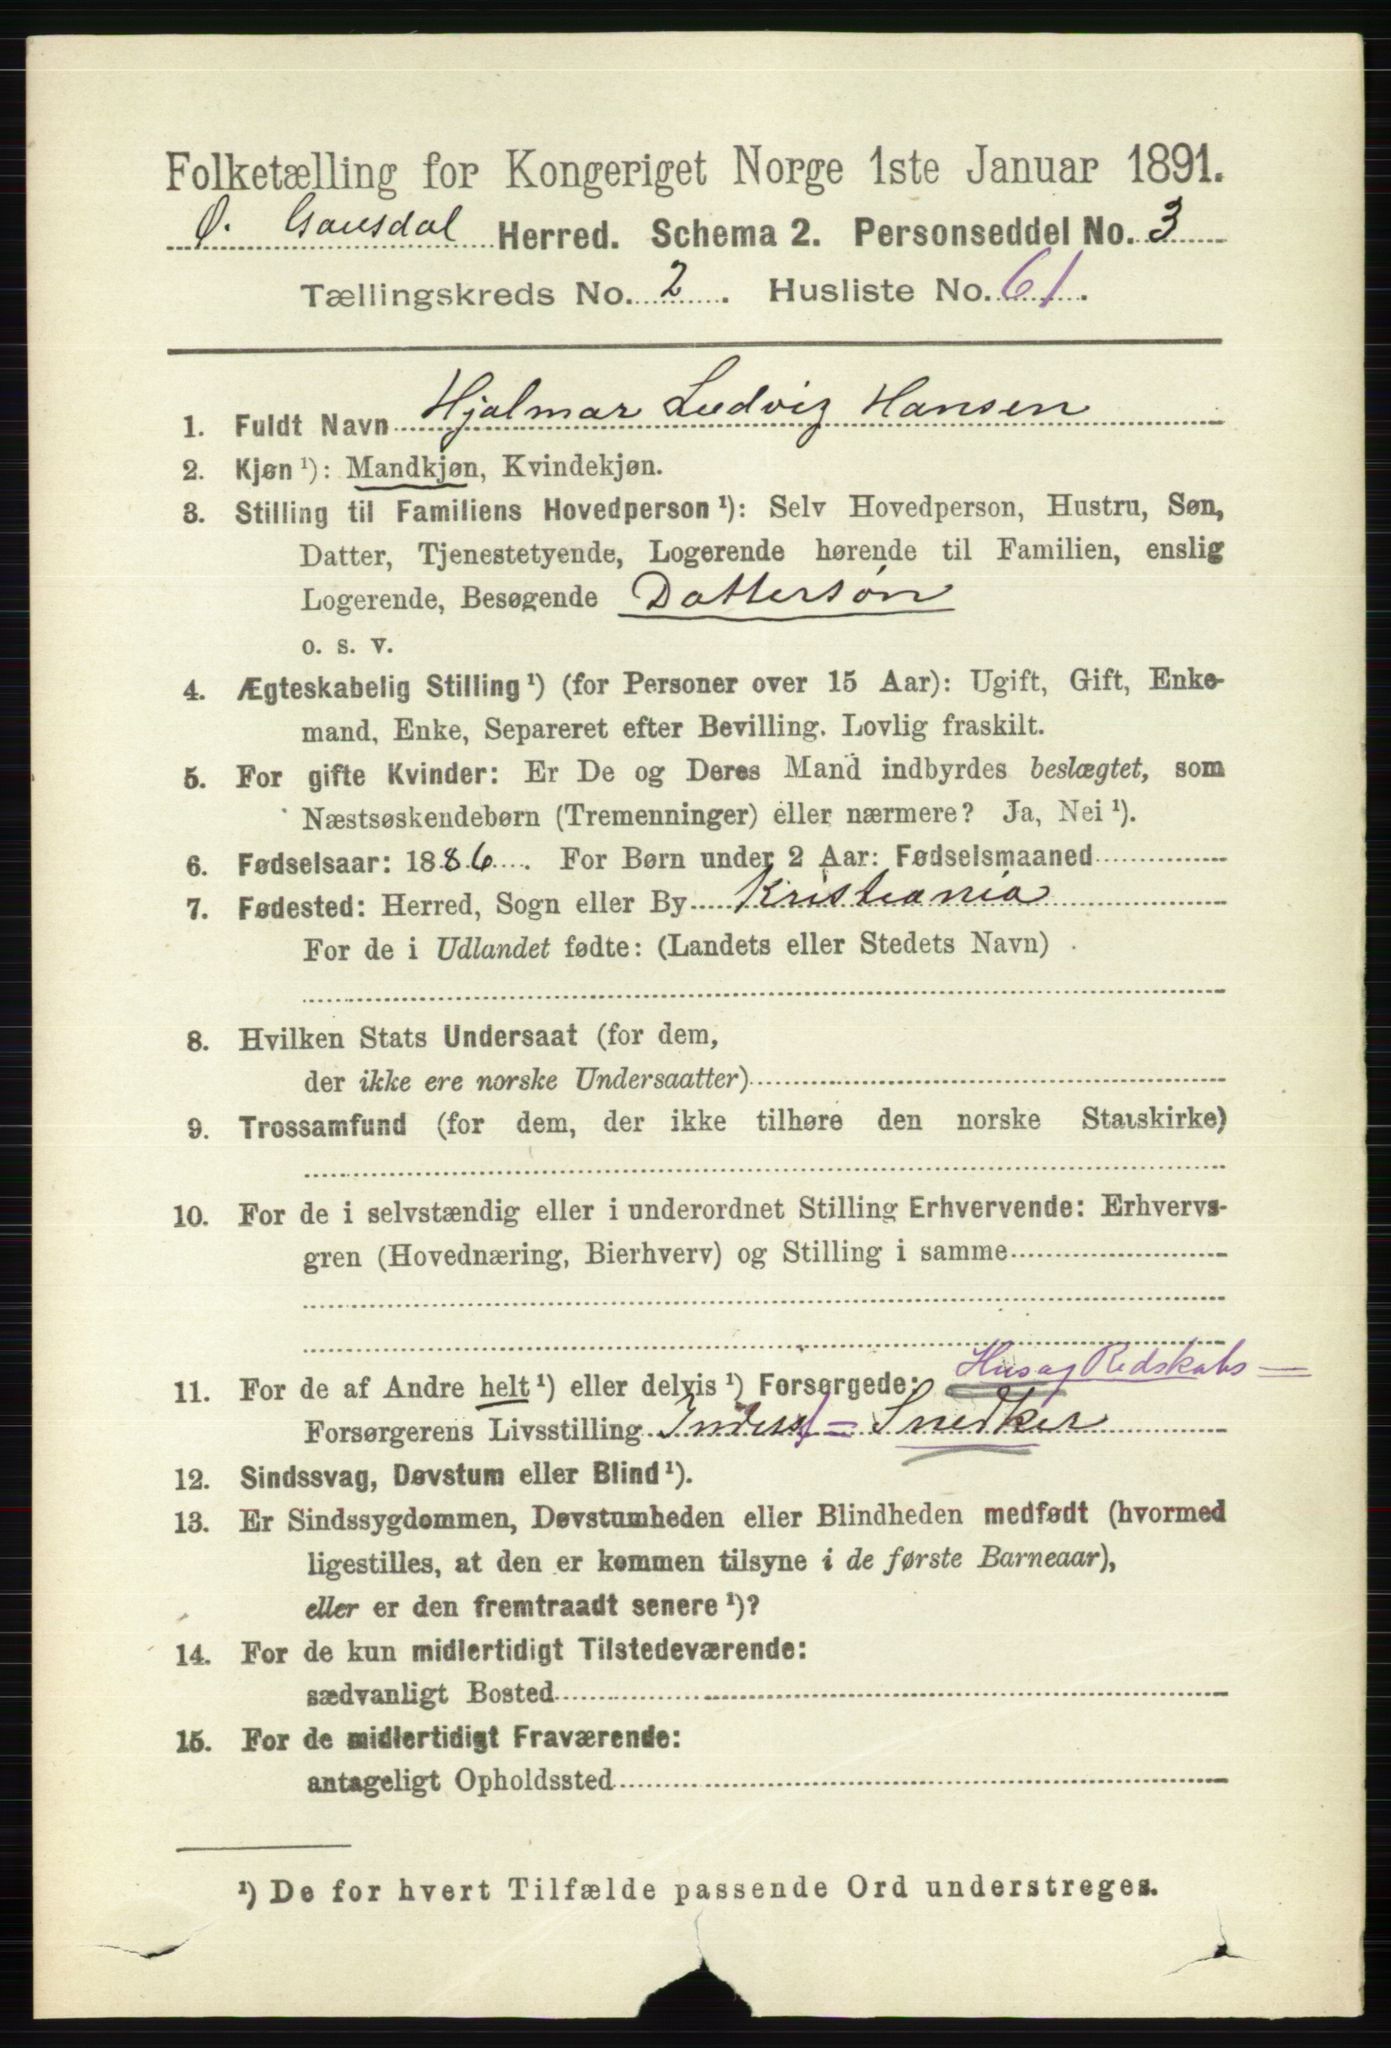 Folketælling for Kongeriget Norge 1ste Januar 1891.
Ø. Gausdal Herred. Schema 2. Personseddel No. 3
Tællingskreds No. 2. Husliste No. 61.
1. Fuldt Navn Hjalmar Ludvig Hansen
2. Kjøn ¹): Mandkjøn, Kvindekjøn.
3. Stilling til Familiens Hovedperson ¹): Selv Hovedperson, Hustru, Søn,
Datter, Tjenestetyende, Logerende hørende til Familien, enslig
Logerende, Besøgende Dattersøn
o. s. v.
4. Ægteskabelig Stilling ¹) (for Personer over 15 Aar): Ugift, Gift, Enke-
mand, Enke, Separeret efter Bevilling. Lovlig fraskilt.
5. For gifte Kvinder: Er De og Deres Mand indbyrdes beslægtet, som
Næstsøskendebørn (Tremenninger) eller nærmere? Ja, Nei ¹).
6. Fødselsaar: 1886. For Børn under 2 Aar: Fødselsmaaned
7. Fødested: Herred, Sogn eller By Kristiania
For de i Udlandet fødte: (Landets eller Stedets Navn)
8. Hvilken Stats Undersaat (for dem,
der ikke ere norske Undersaatter)
9. Trossamfund (for dem, der ikke tilhøre den norske Statskirke)
10. For de i selvstændig eller i underordnet Stilling Erhvervende: Erhvervs-
gren (Hovednæring, Bierhverv) og Stilling i samme
Hus og Redskabs=
11. For de af Andre helt ¹) eller delvis ¹) Forsørgede:
Forsørgerens Livsstilling = Snedker
12. Sindssvag, Døvstum eller Blind ¹).
13. Er Sindssygdommen, Døvstumheden eller Blindheden medfødt (hvormed
ligestilles, at den er kommen tilsyne i de første Barneaar),
eller er den fremtraadt senere ¹)?
14. For de kun midlertidigt Tilstedeværende:
sædvanligt Bosted
15. For de midlertidigt Fraværende:
antageligt Opholdssted
¹) De for hvert Tilfælde passende Ord understreges.